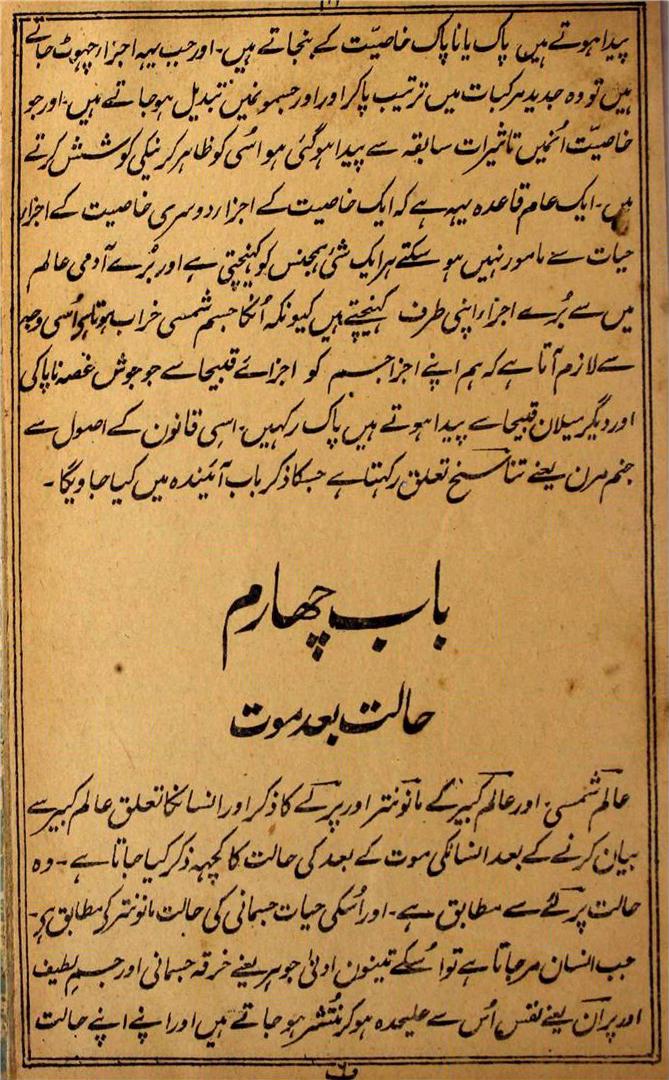 پیدا ہوتے ہیں پاک یا ناپاک خاصیّت کے بنجاتے ہیں۔ اور جب یہہ اجزا چہوٹ جاتے
ہیں تو وہ جدید مرکبات میں ترتیب پاکر اور اور جسمونمیں تبدیل ہوجاتے ہیں۔ اور جو
خاصیّت اُنمیں تاثیرات سابقہ سے پیدا ہوگئی ہو اُسی کو ظاہر کرنیکی کوشش کرتے
ہیں۔ ایک عام قاعدہ یہہ ہے کہ ایک خاصیت کے اجزا دوسری خاصیت کے اجزاء
حیات سے مامور نہیں ہو سکتے ہر ایک شئ ہمجنس کو کہنیچتی ہے اور بُرے آدمی عالم
میں سے بُرے اجزاء اپنی طرف کہنیچتے ہیں کیونکہ اُنکا جسم شمسی خراب ہوتا ہی اُسی وجہ
سے لازم آتا ہے کہ ہم اپنے اجزا جسم کو اجزائے قبیحا سے جو جوش غصہ ناپاکی
اور دیگر میلان قبیحا سے پیدا ہوتے ہیں پاک رکہیں۔ اسی قانون کے اصول سے
جنم مرن یعنے تناسخ تعلق رکہتا ہے جسکا ذکر باب آئیندہ میں کیا جاویگا۔
باب چھارم
حالت بعد موت
عالم شمسی اور عالم کبیر کے مانونتر اور پرلے کا ذکر اور انسانکا تعلق عالم کبیر سے
بیان کرنے کے بعد انسانکی موت کے بعد کی حالت کا کچہہ ذکر کیا جاتا ہے۔ وہ
حالت پرلے سے مطابق ہے۔ اور اُسکی حیات جسمانی کی حالت مانونتر کی مطابق ہی۔
جب انسان مرجاتا ہے تو اُسکے تینون ادنیٰ جوہر یعنے خرقہ جسمانی اور جسم لطیف
اور پران یعنے نفس اُس سے علیحدہ ہوکر منتشر ہو جاتے ہیں اور اپنے اپنے حالت